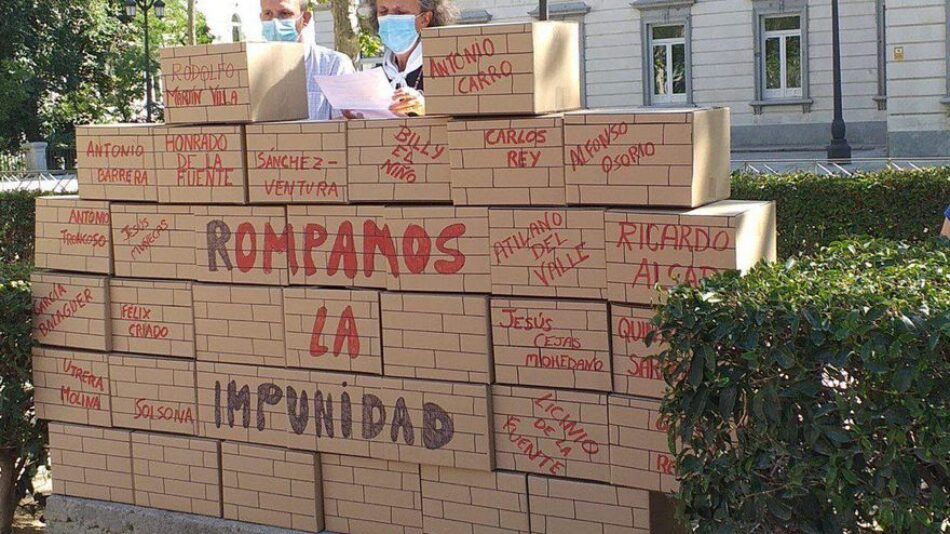 RODOLFO
MARTIN VILLA
ANTONIO
CARRO
ANTONIO
BARRERA
HONRADO
DE LA
FUENTE
SÁNCHEZ-
VENTURA
BILLY
EL
NIÑO
CARLOS
REY
ALFONSO
OSORIO
ANTONIO
TRONCOSO
JESÚS
MUÑECAS
ROMPAMOS
ATILANO
DEL
VALLE
RICARDO
ALGAR
GARCÍA
BALAGUER
FÉLIX
CRIADO
LA
JESÚS
CEJAS
MOHEDANO
UTRERA
MOLINA
SOLSONA
IMPUNIDAD
LICINIO
DE LA
FUENTE